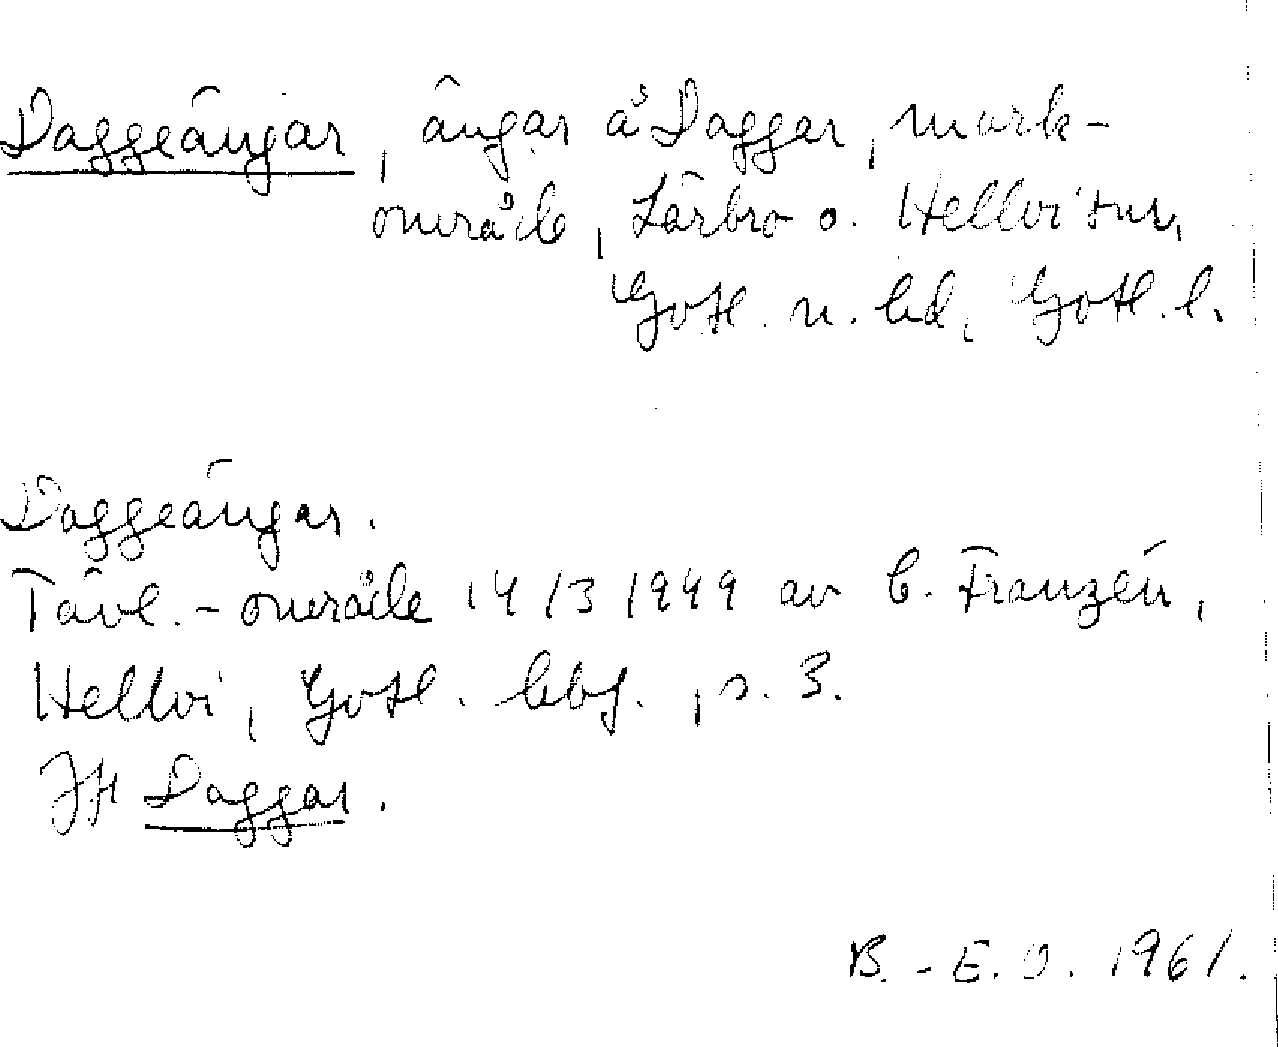 Daggeängar, ängar å Daggar, mark-
område, Lärbro o. Hellvi snr,
Gotl. n. hd, Gotl. l.
Daggeängar.
Tävl.-område 14/3 1949 av C. Franzén,
Hellvi, Gotl. , s. 3.
Jfr Daggar.
B.-E. O. 1961.